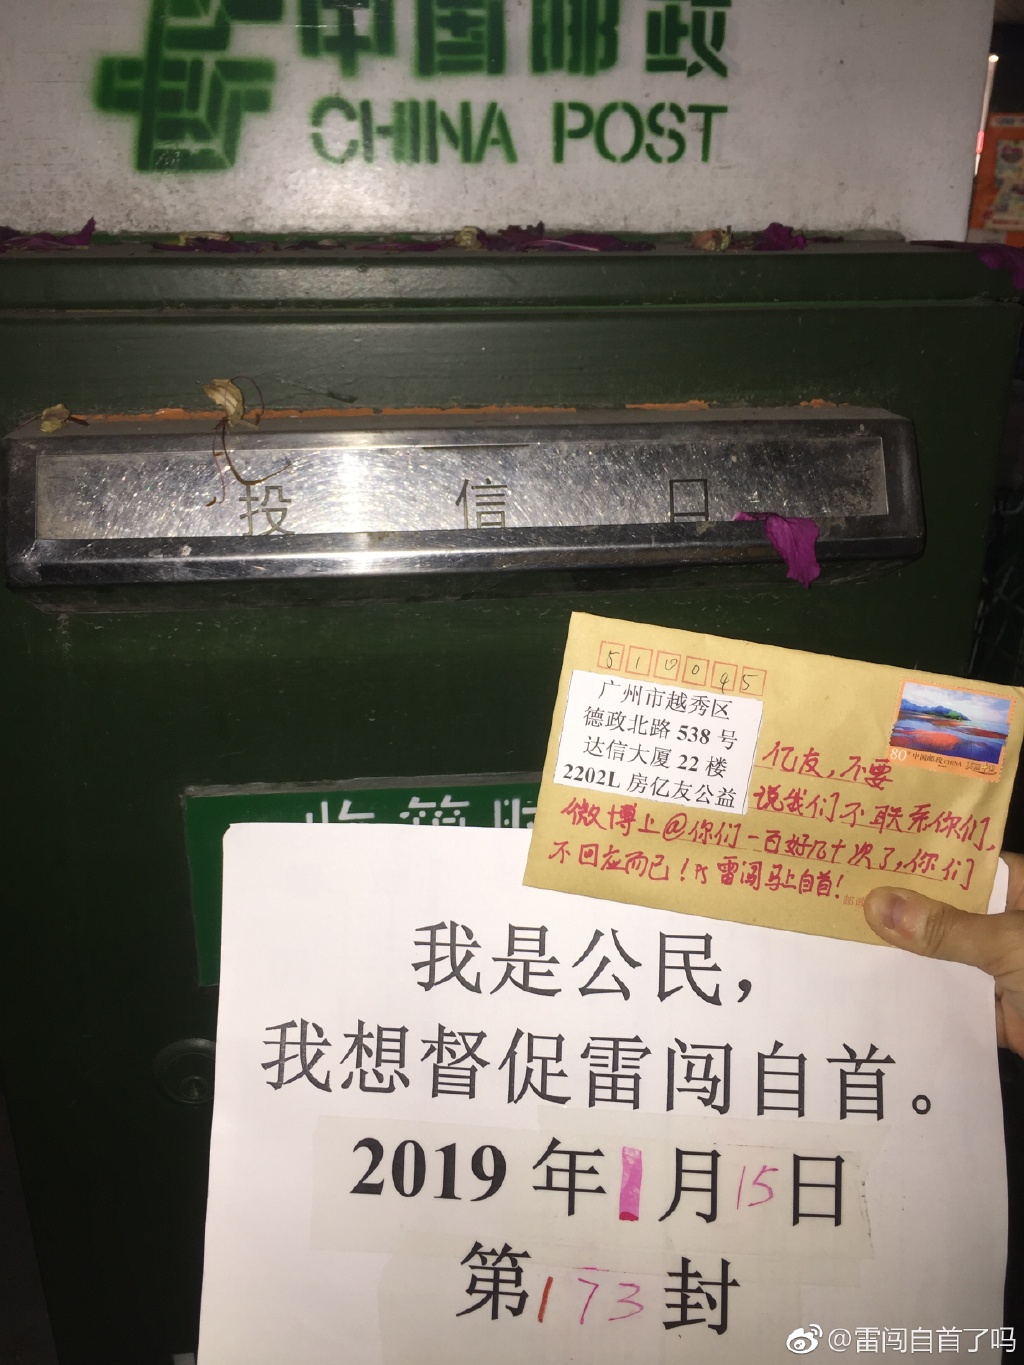 中国邮政
CHINA POST
投信口
510045
广州市越秀区
德政北路 538 号
达信大厦 22 楼
2202L 房亿友公益
80
中国邮政 CHINA
亿友，不要
说我们不联系你们，
微博上@你们一百好几十次了，你们
不回应而已！
雷闯马上自首！
我是公民，
我想督促雷闯自首。
2019 年 1 月 15 日
第 173 封
@雷闯自首了吗